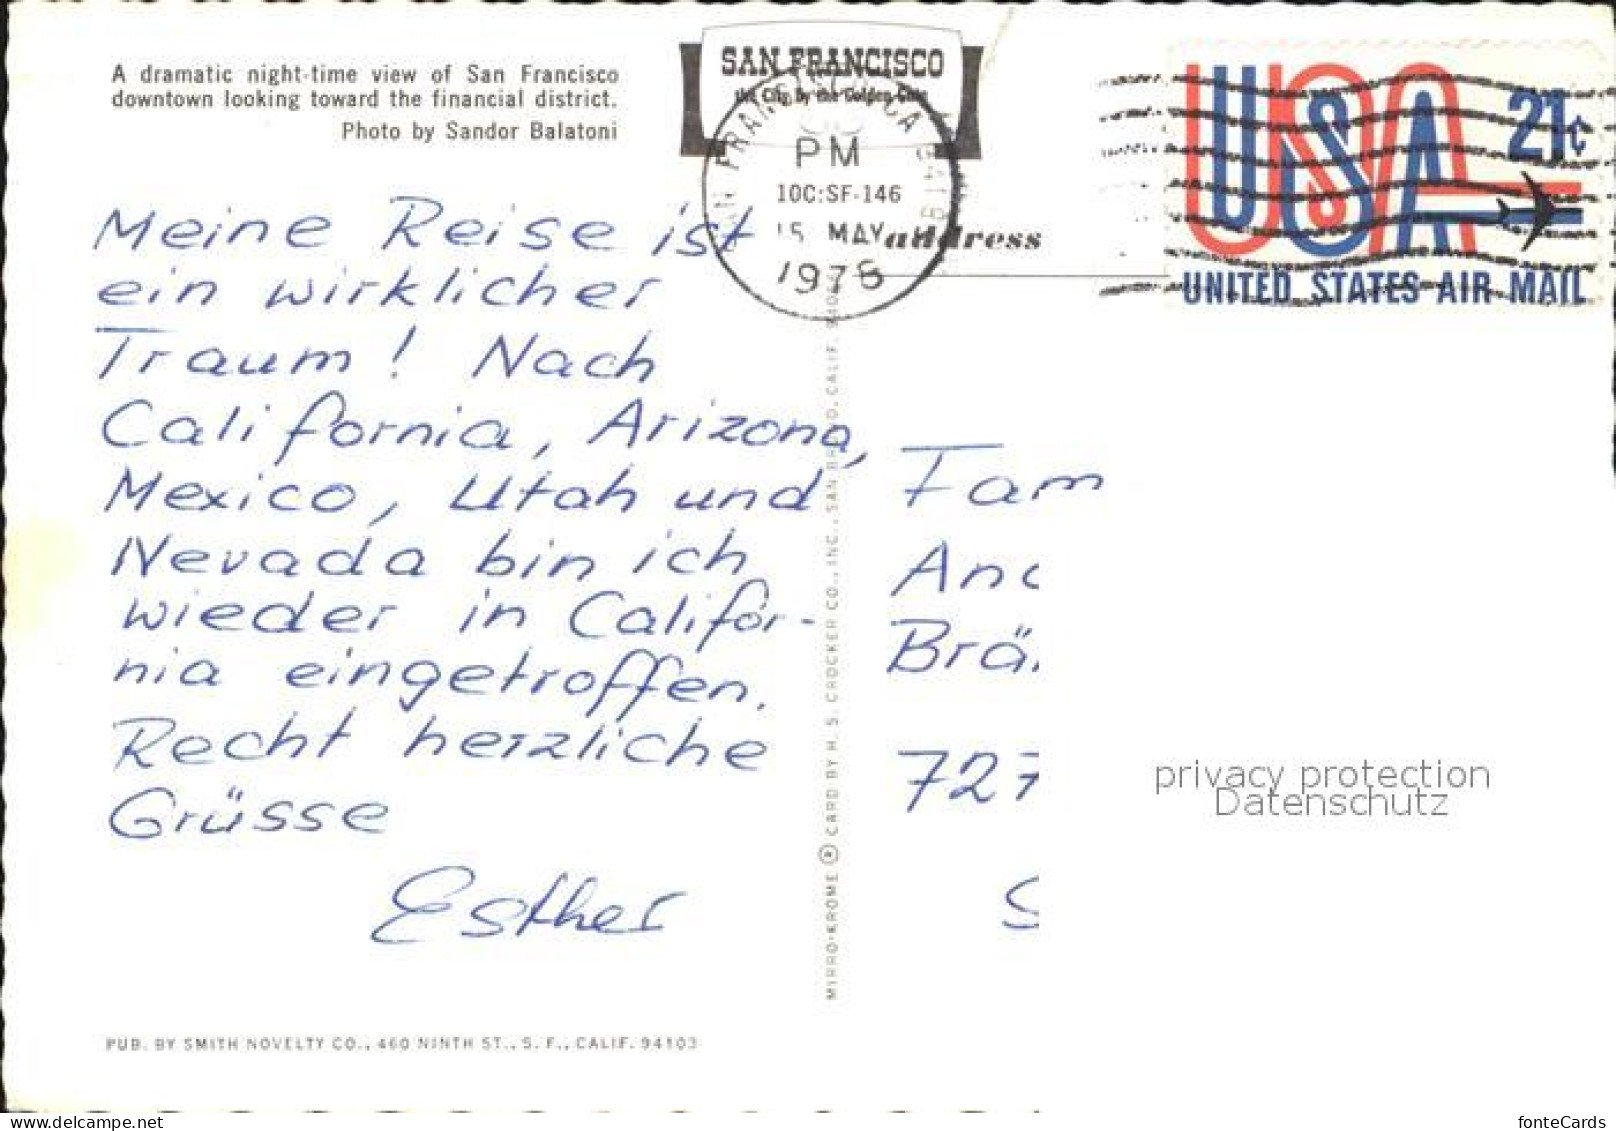 A dramatic night-time view of San Francisco
downtown looking toward the financial district.
Photo by Sandor Balatoni
SAN FRANCISCO
the City by the Golden Gate
PM
10C:SF-146
15 MAY
1975
address
21¢
USA
UNITED STATES AIR MAIL
Meine Reise ist
ein wirklicher
Traum! Nach
California, Arizona,
Mexico, Utah und
Nevada bin ich
wieder in Califor-
nia eingetroffen.
Recht herzliche
Grüsse
Esther
Fam
727
S
MIRRO-KROME ® CARD BY H. S. CROCKER CO., INC., SAN BRUNO, CALIF. 940
privacy protection
Datenschutz
PUB. BY SMITH NOVELTY CO., 460 NINTH ST., S. F., CALIF. 94103
www.delcampe.net
fonteCards